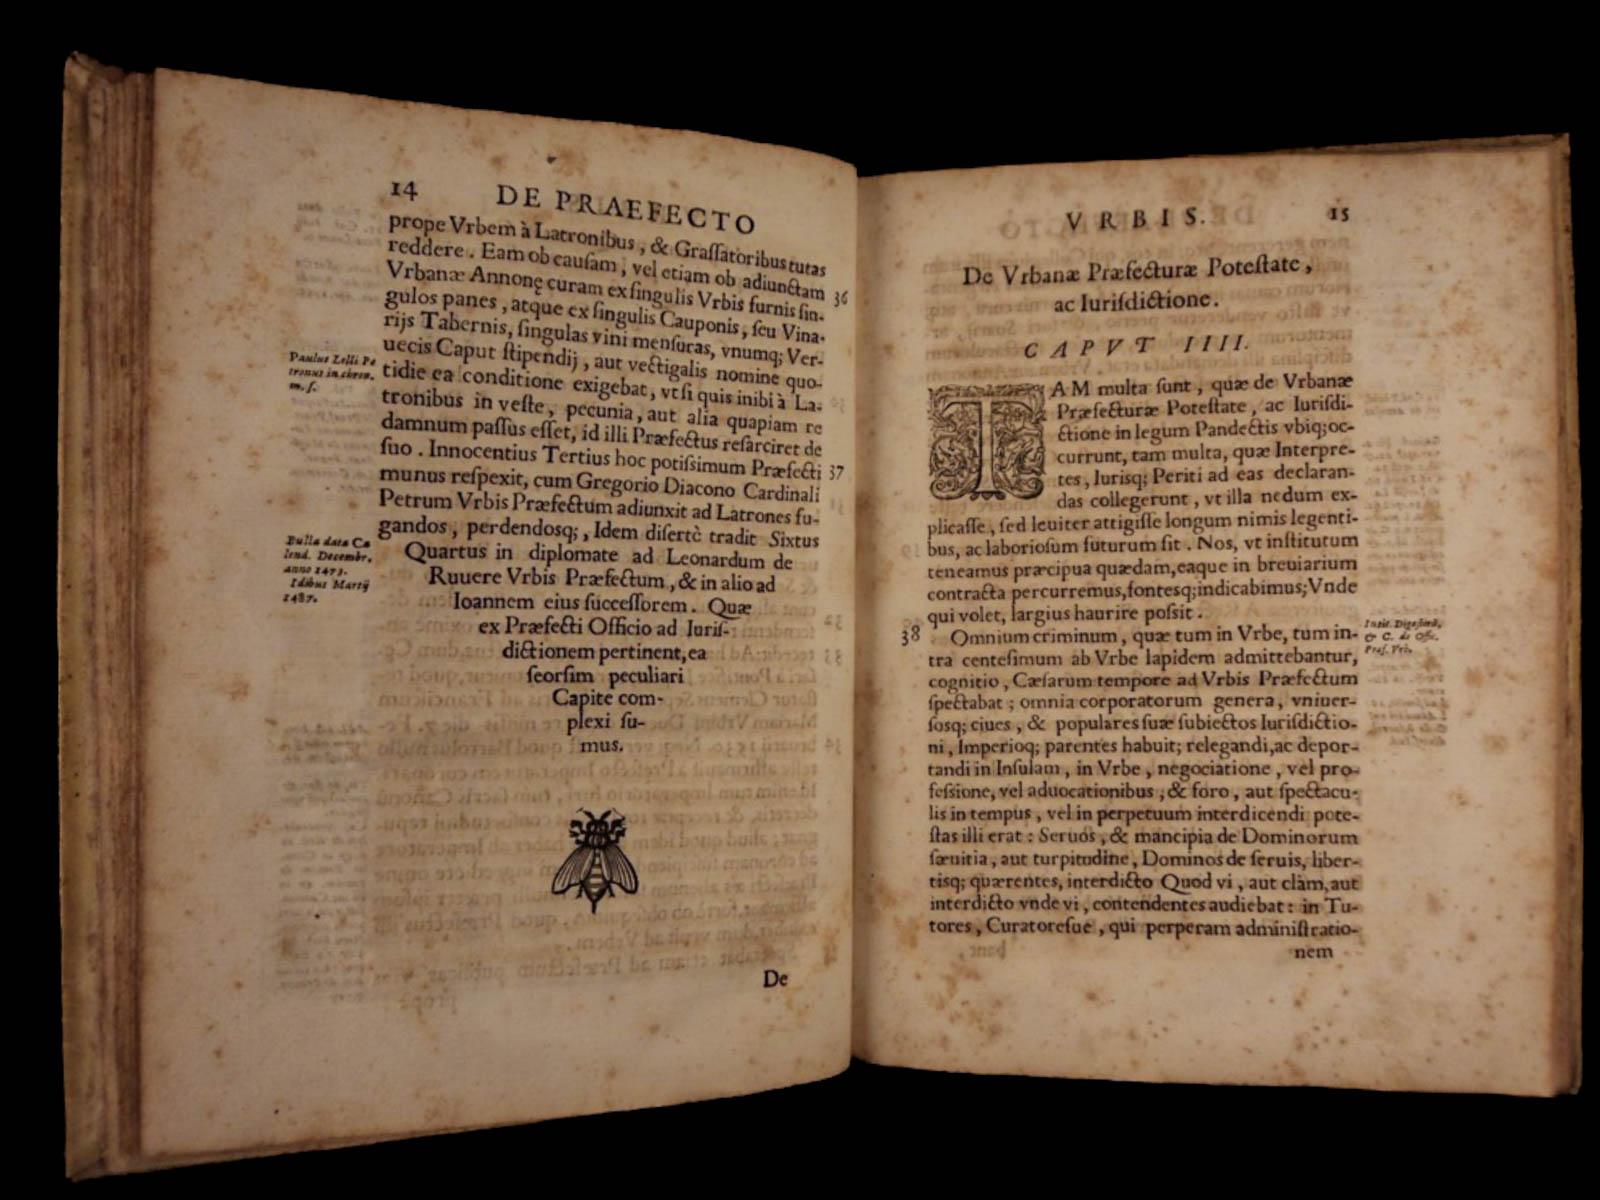 14 DE PRAEFECTO
prope Vrbem à Latronibus, & Graſſatoribus tutas
reddere. Eam ob cauſam, vel etiam ob adiunctam 36
Vrbanæ Annonę curam ex ſingulis Vrbis furnis ſin-
gulos panes, atque ex ſingulis Cauponis, ſeu Vina-
rijs Tabernis, ſingulas vini menſuras, vnumq; Ver-
uecis Caput ſtipendij, aut vectigalis nomine quo-
Paulus Lelli Pe
tronus in chron.
m. ſ.
tidie ea conditione exigebat, vt ſi quis inibi à La-
tronibus in veſte, pecunia, aut alia quapiam re
damnum paſſus eſſet, id illi Præfectus reſarciret de
ſuo. Innocentius Tertius hoc potiſsimum Præfecti 37
munus reſpexit, cum Gregorio Diacono Cardinali
Petrum Vrbis Præfectum adiunxit ad Latrones fu-
gandos, perdendosq;, Idem diſertè tradit Sixtus
Bulla data Ca
lend. Decembr.
anno 1473.
Idibus Martij
1487.
Quartus in diplomate ad Leonardum de
Ruuere Vrbis Præfectum, & in alio ad
Ioannem eius ſucceſſorem. Quæ
ex Præfecti Officio ad Iuriſ-
dictionem pertinent, ea
ſeorſim peculiari
Capite com-
plexi ſu-
mus.
De
VRBIS. 15
De Vrbanæ Præfecturæ Poteſtate,
ac Iuriſdictione.
CAPVT IIII.
TAM multa ſunt, quæ de Vrbanæ
Præfecturæ Poteſtate, ac Iuriſdi-
ctione in legum Pandectis vbiq; oc-
currunt, tam multa, quæ Interpre-
tes, Iurisq; Periti ad eas declaran-
das collegerunt, vt illa nedum ex-
plicaſſe, ſed leuiter attigiſſe longum nimis legenti-
bus, ac laborioſum futurum ſit. Nos, vt inſtitutum
teneamus præcipua quædam, eaque in breuiarium
contracta percurremus, fontesq; indicabimus; Vnde
qui volet, largius haurire poſsit.
38 Omnium criminum, quæ tum in Vrbe, tum in-
Inſtit. Digeſtorũ,
& C. de Offic.
Præf. Vrb.
tra centeſimum ab Vrbe lapidem admittebantur,
cognitio, Cæſarum tempore ad Vrbis Præfectum
ſpectabat; omnia corporatorum genera, vniuer-
ſosq; ciues, & populares ſuæ ſubiectos Iuriſdictio-
ni, Imperioq; parentes habuit; relegandi, ac depor-
tandi in Inſulam, in Vrbe, negociatione, vel pro-
feſsione, vel aduocationibus, & foro, aut ſpectacu-
lis in tempus, vel in perpetuum interdicendi pote-
ſtas illi erat: Seruos, & mancipia de Dominorum
ſæuitia, aut turpitudine, Dominos de ſeruis, liber-
tisq; quærentes, interdicto Quod vi, aut clàm, aut
interdicto vnde vi, contendentes audiebat: in Tu-
tores, Curatoreſue, qui perperam adminiſtratio-
nem